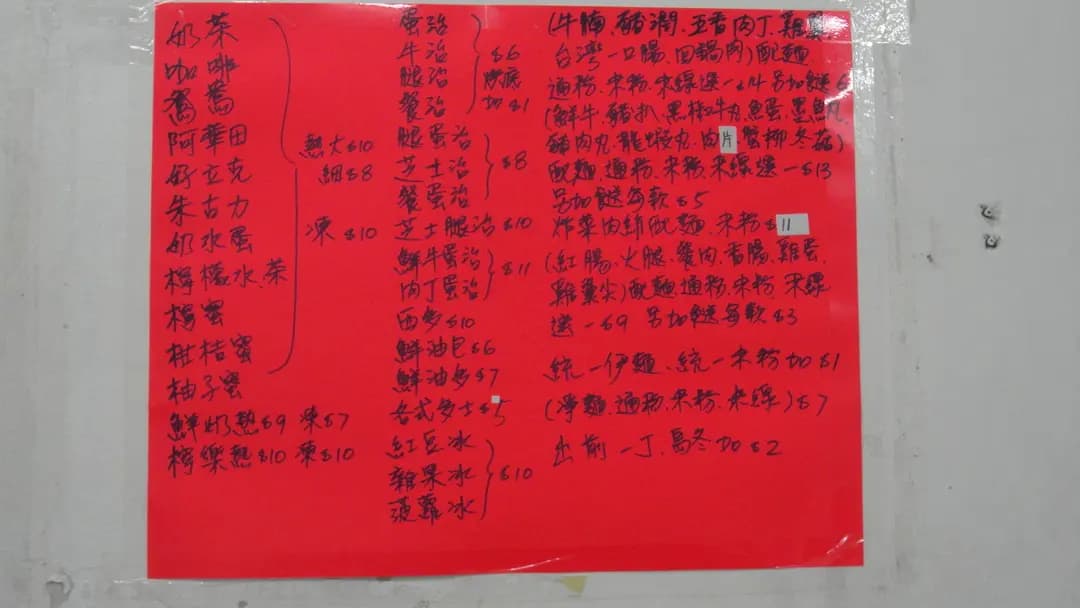 奶茶
咖啡
鴛鴦
阿華田
好立克
朱古力
奶水蛋
檸檬水.茶
檸蜜
柑桔蜜
柚子蜜
熱大$10
細$8
凍 $10
鮮奶熱$9 凍$7
檸樂熱$10 凍$10
蛋治
牛治
腿治
餐治
$6
烘底
加$1
腿蛋治
芝士治
餐蛋治
$8
芝士腿治 $10
鮮牛蛋治
肉丁蛋治
$11
西多$10
鮮油包$6
鮮油多$7
各式多士$5
紅豆冰
雜果冰
菠蘿冰
$10
(牛腩.豬潤.五香肉丁.雞翼
台灣一口腸.回鍋肉)配麵
通粉.米粉.米線選一$14另加餸
(鮮牛.豬扒.黑椒牛丸.魚蛋.墨魚丸.
豬肉丸.龍蝦丸.肉片.蟹柳.冬菇)
配麵.通粉.米粉.米線選一$13
另加餸每款$5
炸菜肉絲配麵.米粉$11
(紅腸.火腿.餐肉.香腸.雞蛋.
雞翼尖)配麵.通粉.米粉.米線
選一$9 另加餸每款$3
統一伊麵.統一米粉加$1
(淨麵.通粉.米粉.米線)$7
出前一丁.烏冬加$2